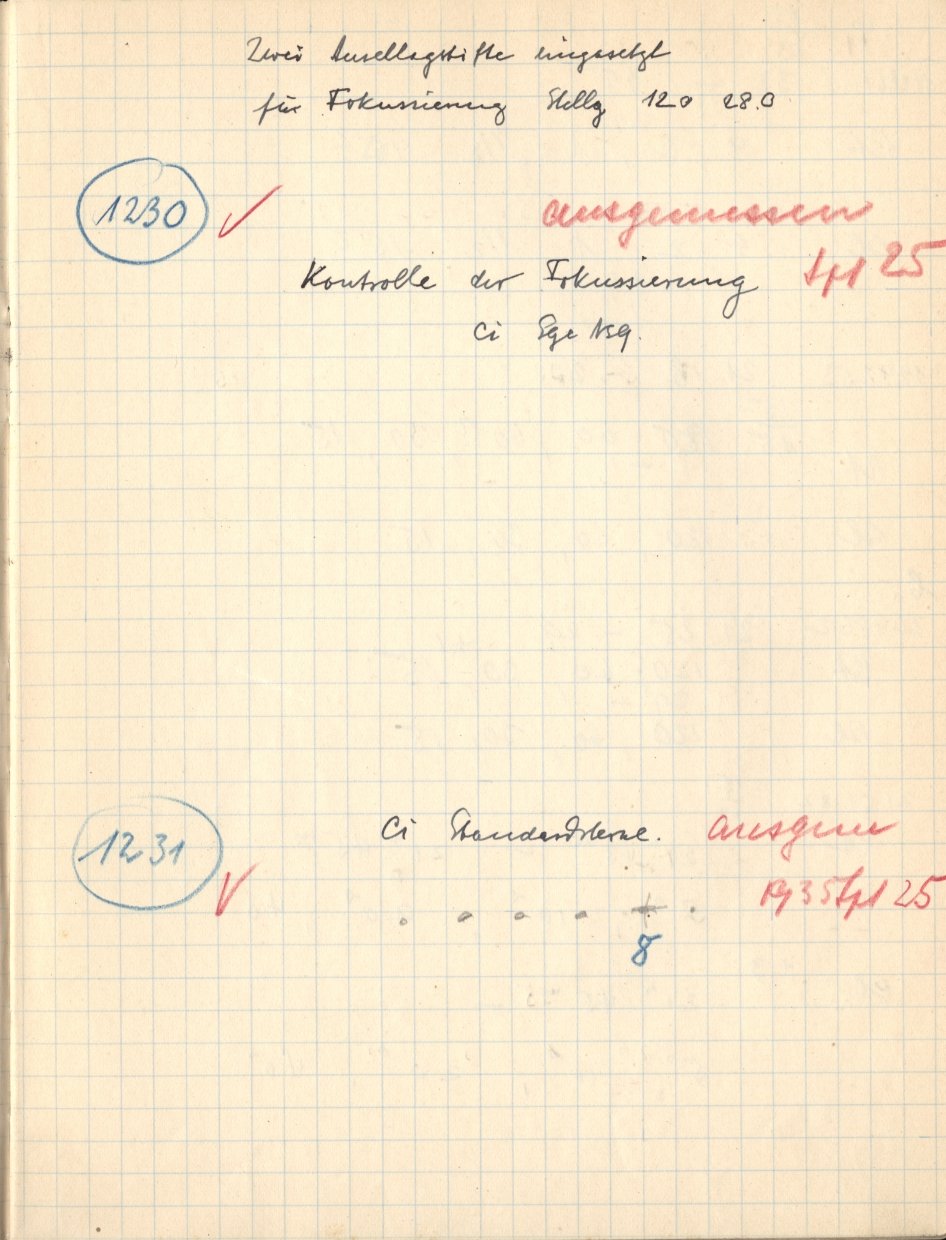 Zwei Anschlagstifte eingesetzt
für Fokussierung Stellg 12.0 28.0
1230 ausgemessen
Kontrolle der Fokussierung Spl 25
Ci
1231 Ci Standardsterne. ausgem
Spl 25
8